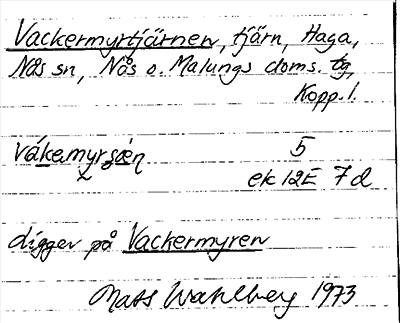 Vackermyrtjärnen, tjärn, Haga,
Nås sn, Nås o. Malungs doms. tg,
Kopp. l.
våkamyrʂæ̣n 5
ek 12E 7d
ligger på Vackermyren
Mats Wahlberg 1973